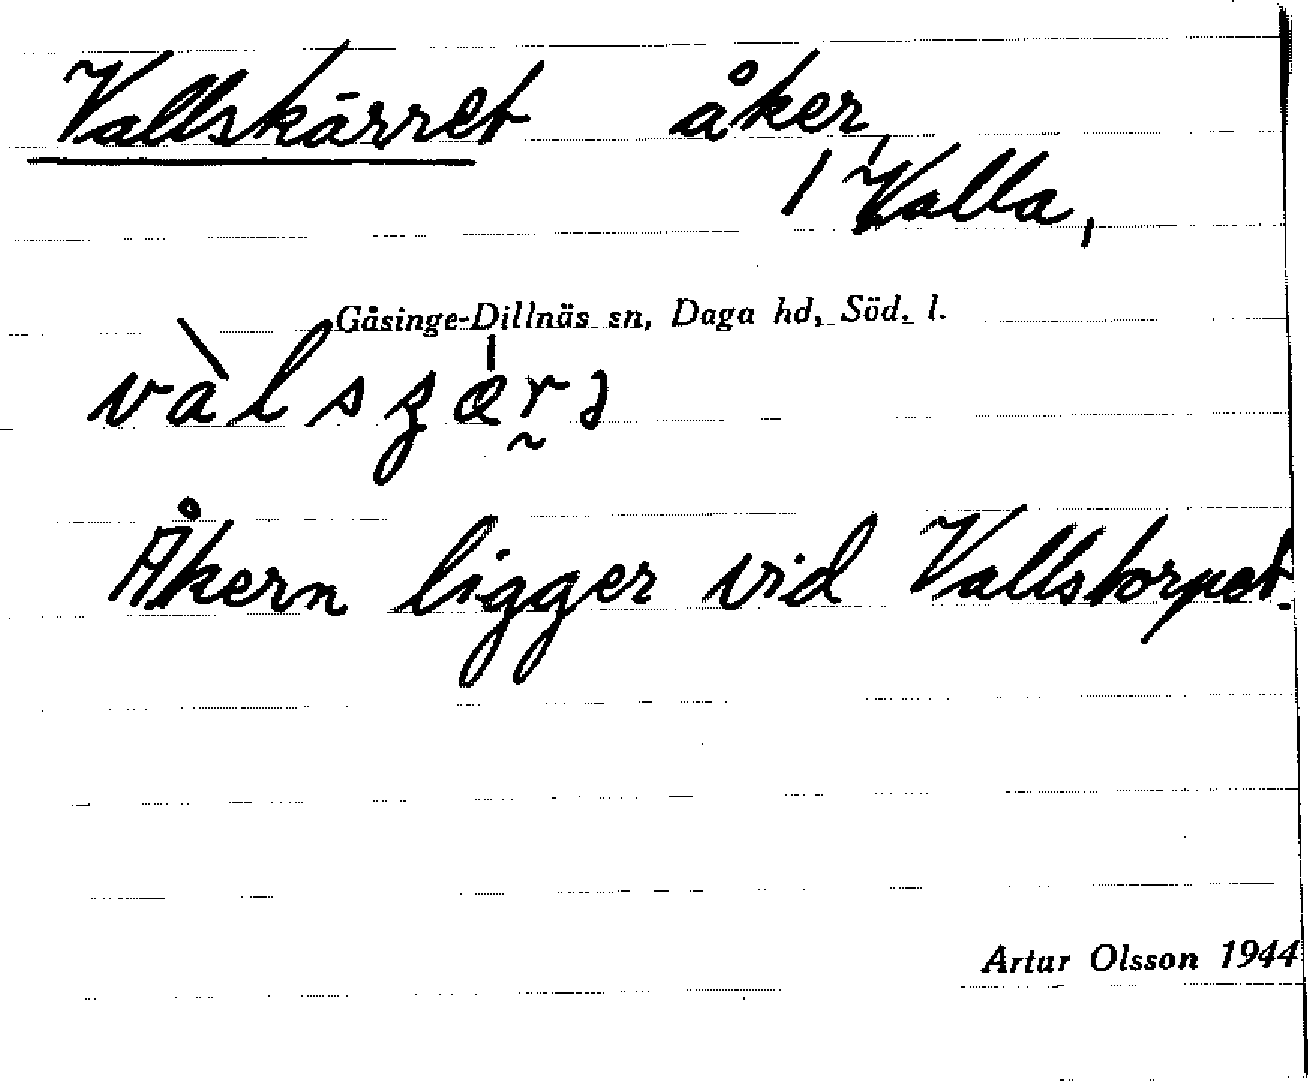 Vallskärret åker,
1 Valla,
Gåsinge-Dillnäs sn, Daga hd, Söd. l.
Åkern ligger vid Vallstorpet.
Artur Olsson 1944